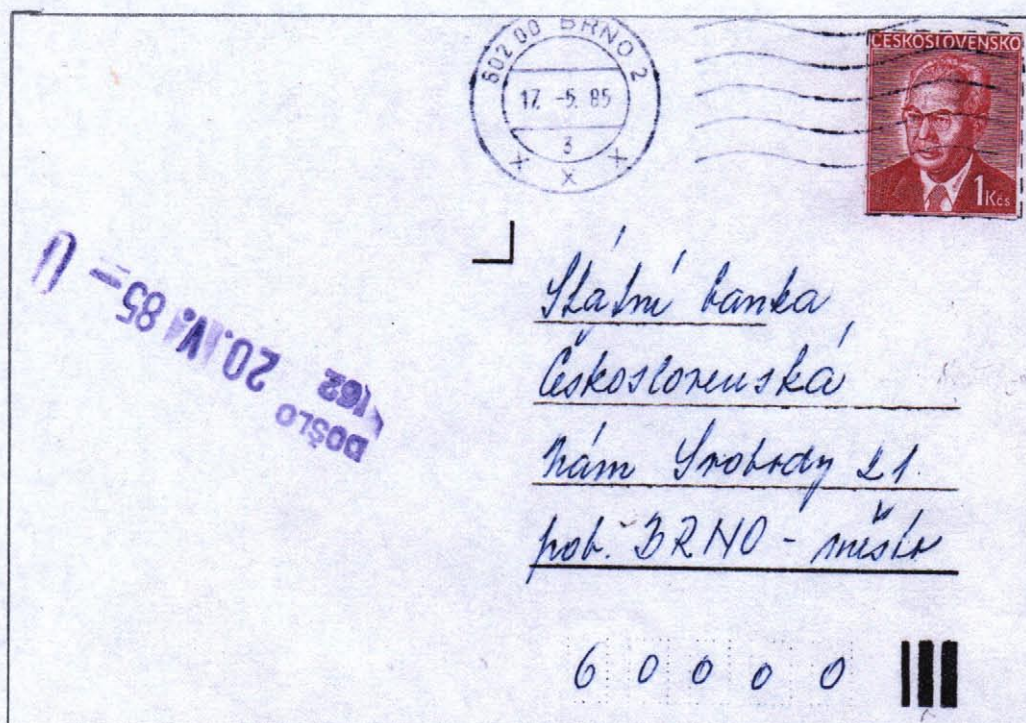 602 00 BRNO 2
17. -5. 85
3
X X X
ČESKOSLOVENSKO
1 Kčs
DOŠLO
162
20. IV. 85
Státní banka
Československá
Nám Svobody 21.
pob. BRNO - město
6 0 0 0 0